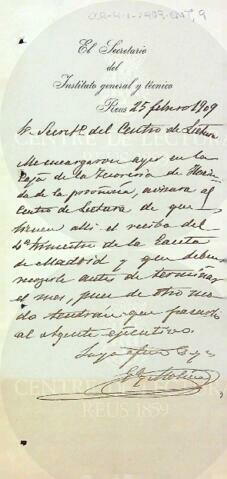 El Secretario
del
Instituto general y técnico
Reus 25 febrero 1909
Sr Secretº del Centro de Lectura
Me encargaron ayer en la
Caja de la Tesorería de Hacien
da de la provincia, avisara al
Centro de Lectura de que
tienen allí el recibo del
4º trimestre de la Gaceta
de Madrid y que deben
recogerlo antes de terminar
el mes, pues de otro mo
do tendrán que pasarlo
al Agente ejecutivo.
Suyo afmo
CENTRE DE LECTURA
REUS 1859